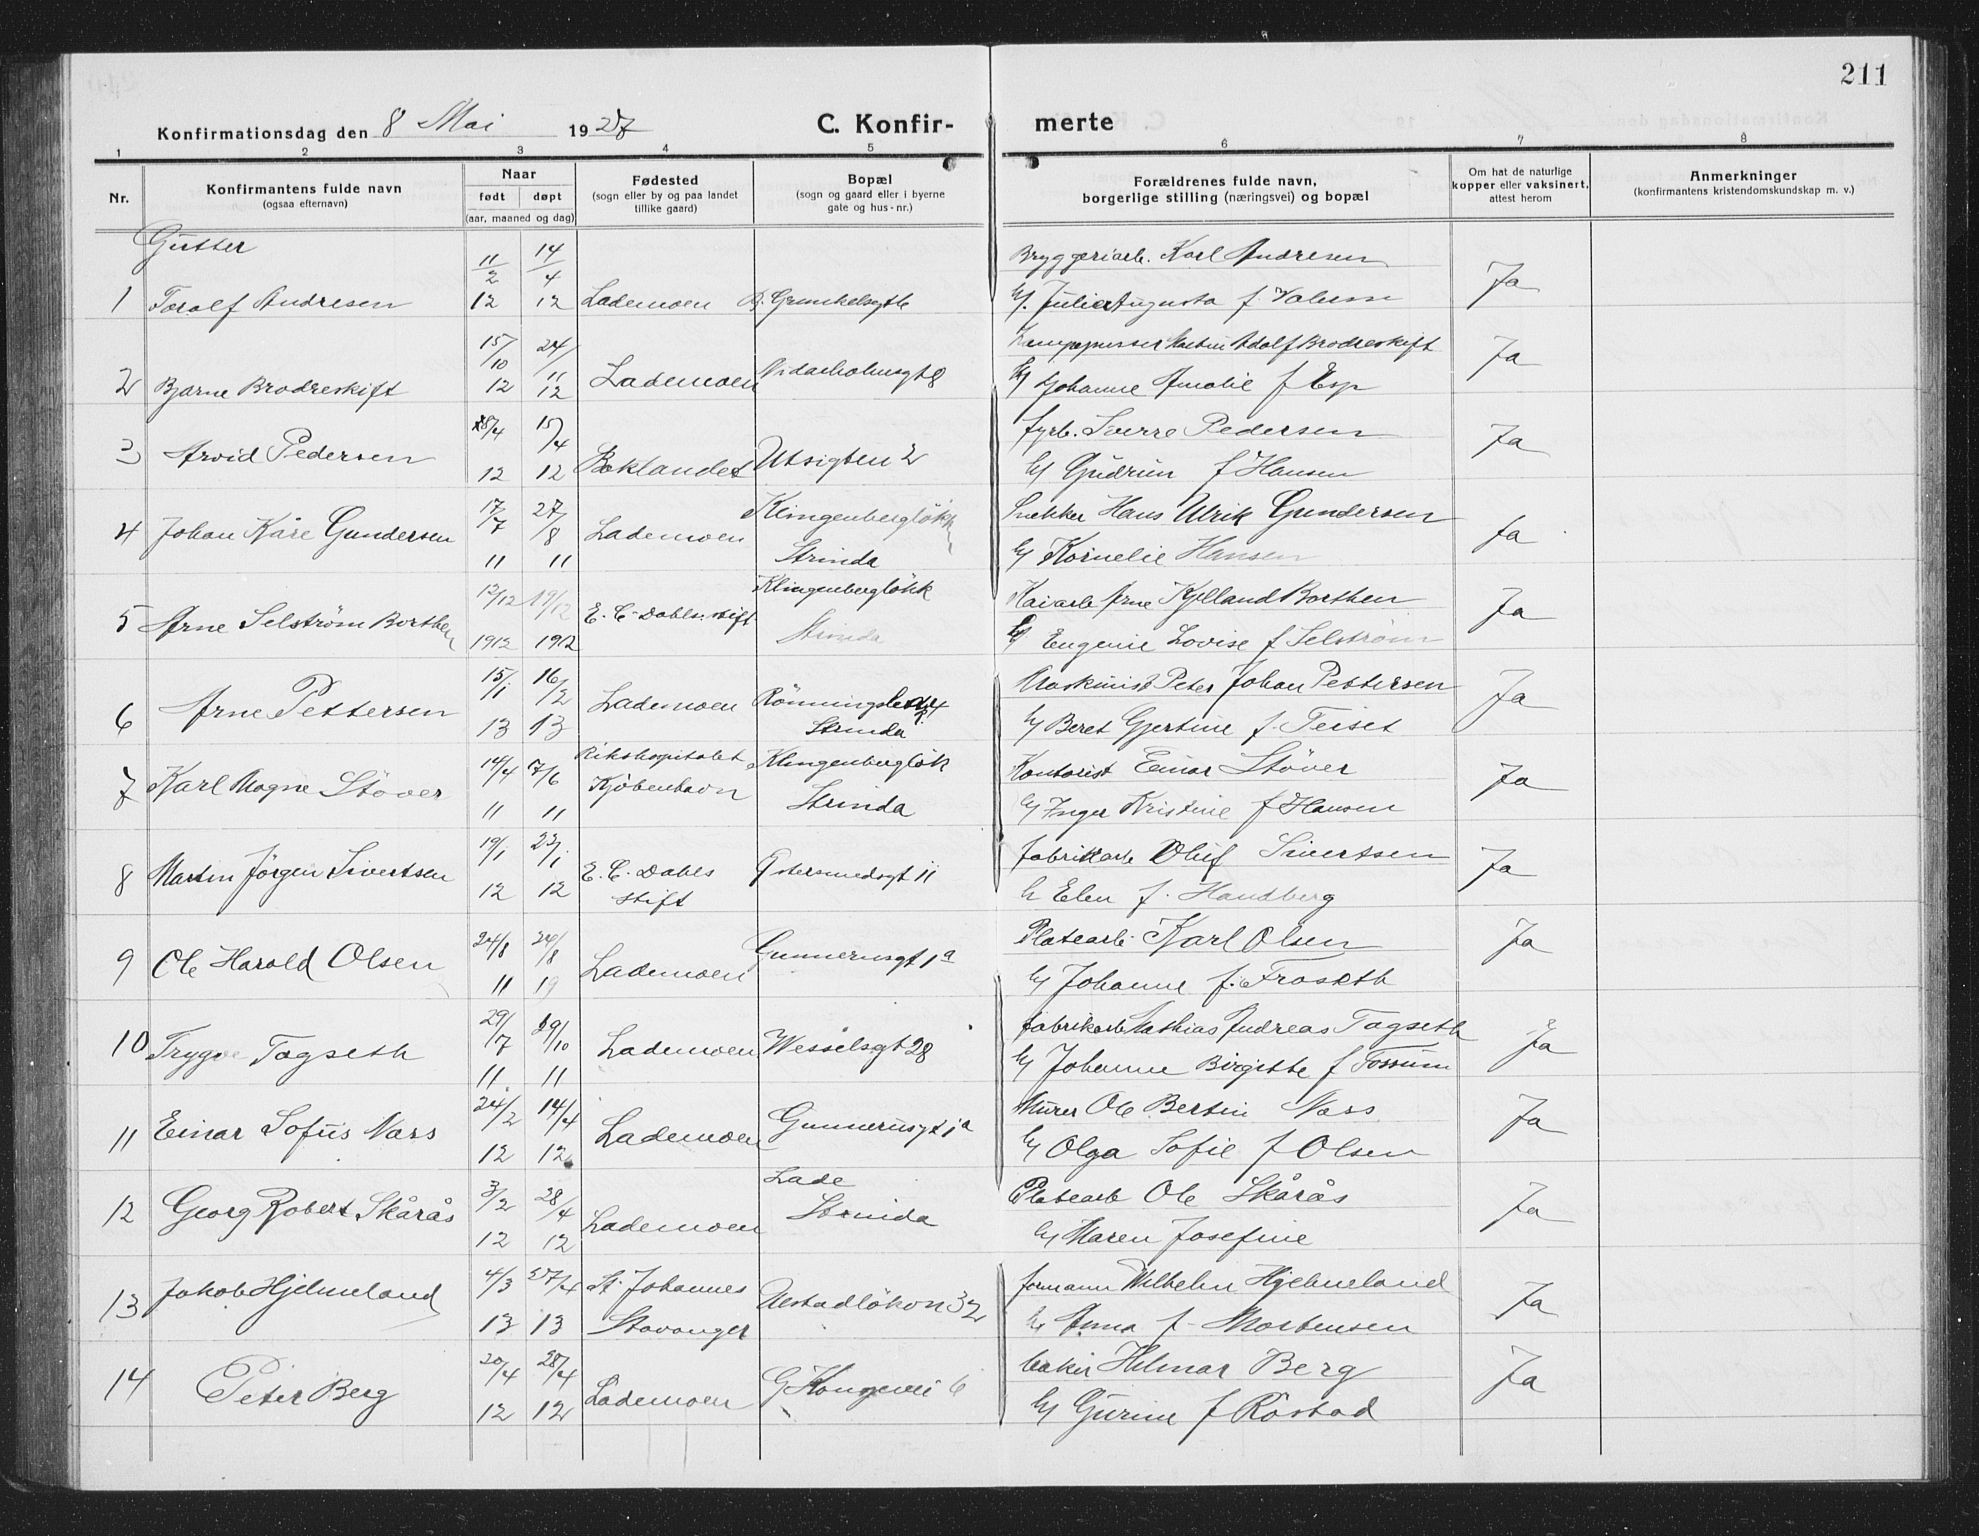 211
Konfirmationsdag den 8 Mai 1927
C. Konfirmerte
1 2 3 4 5 6 7 8
Nr.
Konfirmantens fulde navn
(ogsaa efternavn)
Naar
født døpt
(aar, maaned og dag)
Fødested
(sogn eller by og paa landet
tillike gaard)
Bopæl
(sogn og gaard eller i byerne
gate og hus-nr.)
Forældrenes fulde navn,
borgerlige stilling (næringsvei) og bopæl
Om hat de naturlige
kopper eller vaksinert,
attest herom
Anmerkninger
(konfirmantens kristendomskundskap m. v.)
Gutter
1 Toralf Andresen 11/2 12 14/4 12 Lademoen
Bryggeriarb. Karl Andresen
Ey. Julie Augusta f. Ja
2 Bjarne Brodreskift 15/10 12 24/11 12 Lademoen Nidarholmsgt 8
Martin Adolf Brodreskift
Ey Johanne Amalie f Esp Ja
3 Arvid Pedersen 28/4 12 15/4 12 Baklandet Utsigten 2
fyrb. Sverre Pedersen
Ey Gudrun f Hansen Ja
4 Johan Kåre Gundersen 17/7 11 27/8 11 Lademoen Klingenbergløkk
Strinda
Snekker Hans Ulrik Gundersen
Ey Kornelie Hansen Ja
5 Arne Selstrøm Borthen 12/12 1912 19/12 1912 E. C. Dahls stift Klingenbergløkk
Strinda
Kaiarb Arne Kjelland Borthen
Ey Eugenie Lovise f Selstrøm Ja
6 Arne Pettersen 15/1 13 16/2 13 Lademoen
Strinda
Maskinist Peter Johan Pettersen
Ey Beret Gjertine f. Teiset Ja
7 Karl Magne Støver 14/4 11 7/6 11 Rikshospitalet,
Kjøbenhavn
Klingenbergløk
Strinda
Kontorist Einar Støver
Ey Inger Kristine f Hansen Ja
8 Martin Jörgen Sivertsen 19/1 12 23/1 12 E. C. Dahls
stift
Østersundsgt 11
fabrikkarb Oluf Sivertsen
Ey Elen f. Handberg Ja
9 Ole Harald Olsen 24/8 11 24/8 19 Lademoen Gunnerusgt 1a
Platearb. Karl Olsen
Ey Johanne f. Froseth Ja
10 Trygve Tagseth 29/7 11 29/10 11 Lademoen Wesselsgt 28
fabrikarb Mathias Andreas Tagseth
Ey Johanne Birgitte f Fossum Ja
11 Einar Sofus Næss 24/2 12 14/4 12 Lademoen Gunnerusgt 1a
Murer Ole Bertin Næss
Ey Olga Sofie f Olsen Ja
12 Georg Robert Skårås 3/2 12 28/4 12 Lademoen Lade
Strinda
Platearb Ole Skårås
Ey Maren Josefine Ja
13 Jakob Hjelmeland 4/3 13 27/4 13 St. Johannes
Stavanger
32
formann Wilhelm Hjelmeland
Ey Anna f. Mortensen Ja
14 Peter Berg 20/4 12 28/4 12 Lademoen G Kongevei 6
Hilmar Berg
Ey Gurine f Röstad Ja